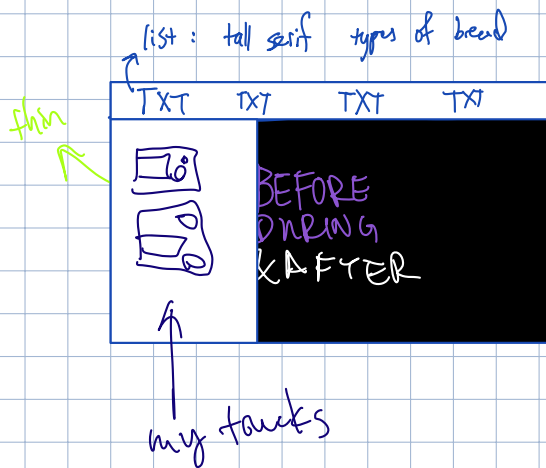 list: tall serif types of bread
TXT TXT TXT TXT
thin
BEFORE
DURING
XAFTER
my